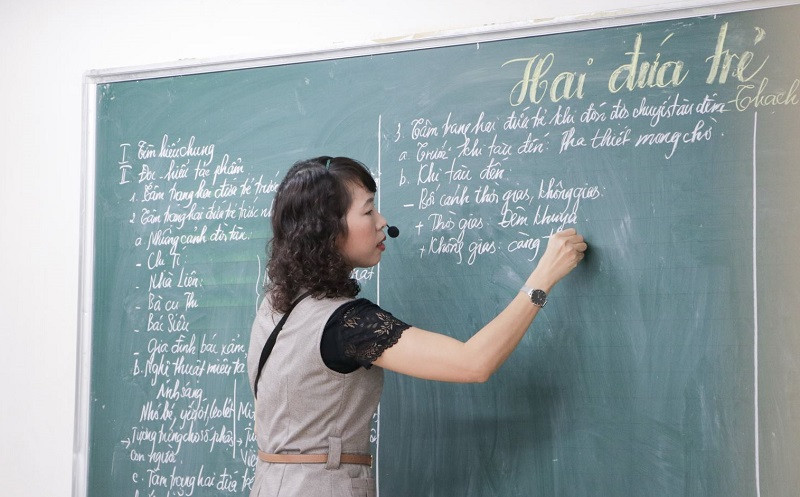 Hai đứa trẻ
Thạch
I Tìm hiểu chung
II Đọc hiểu tác phẩm
1. Tâm trạng hai đứa trẻ trước
2. Tâm trạng hai đứa trẻ trước
a. Những cảnh đời tàn:
- Chị Tí
- Nhà Liên
- Bà cụ Thi
- Bác Siêu
- Gia đình bác xẩm
b. Nghệ thuật miêu tả
Ánh sáng
Nhỏ bé, yếu ớt, leo lét
→ Tượng trưng cho số phận
con người
c. Tâm trạng hai đứa trẻ
3. Tâm trạng hai đứa trẻ khi đón đợi chuyến tàu đêm
a. Trước khi tàu đến: Tha thiết mong chờ.
b. Khi tàu đến:
- Bối cảnh thời gian, không gian:
+ Thời gian: Đêm khuya
+ Không gian: càng